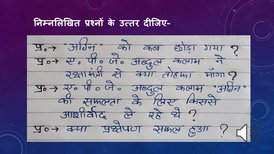 निम्नलिखित प्रश्नों के उत्तर दीजिए-
प्र०→ "अग्नि" को कब छोड़ा गया ?
प्र०→ ए. पी. जे. अब्दुल कलाम ने
रक्षामंत्री से क्या तोहफा मांगा ?
प्र०→ ए. पी. जे. अब्दुल कलाम "अग्नि"
की सफलता के लिए किससे
आशीर्वाद ले रहे थे ?
प्र०→ क्या प्रक्षेपण सफल हुआ ?